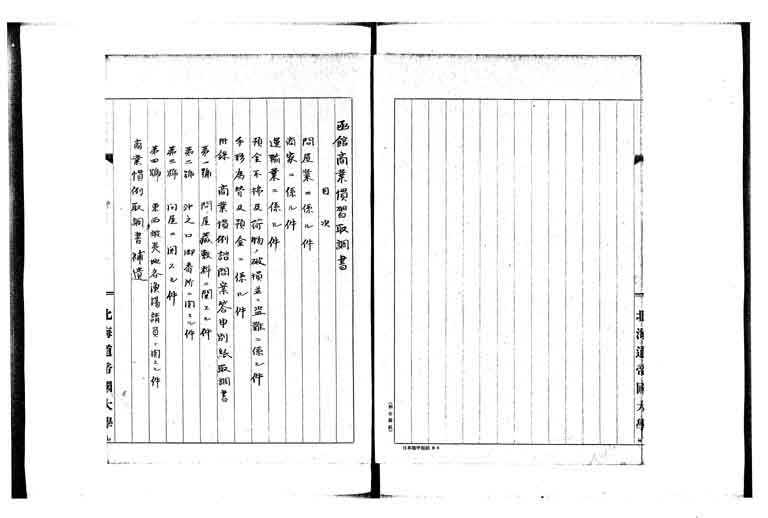 函館商業慣習取調書
目次
問屋業ニ係ル件
商家ニ係ル件
運輸業ニ係ル件
預金不拂及荷物ノ破損並ニ盗難ニ係ル件
手形為替及預金ニ係ル件
附録 商業慣例諮問案答申別紙取調書
第一號 問屋蔵敷料ニ関スル件
第二號 沖之口御番所ニ関スル件
第三號 問屋ニ関スル件
第四號 東西蝦夷地各漁場請負ニ関スル件
商業慣例取調書補遺
北海道帝國大學
北海道帝國大學